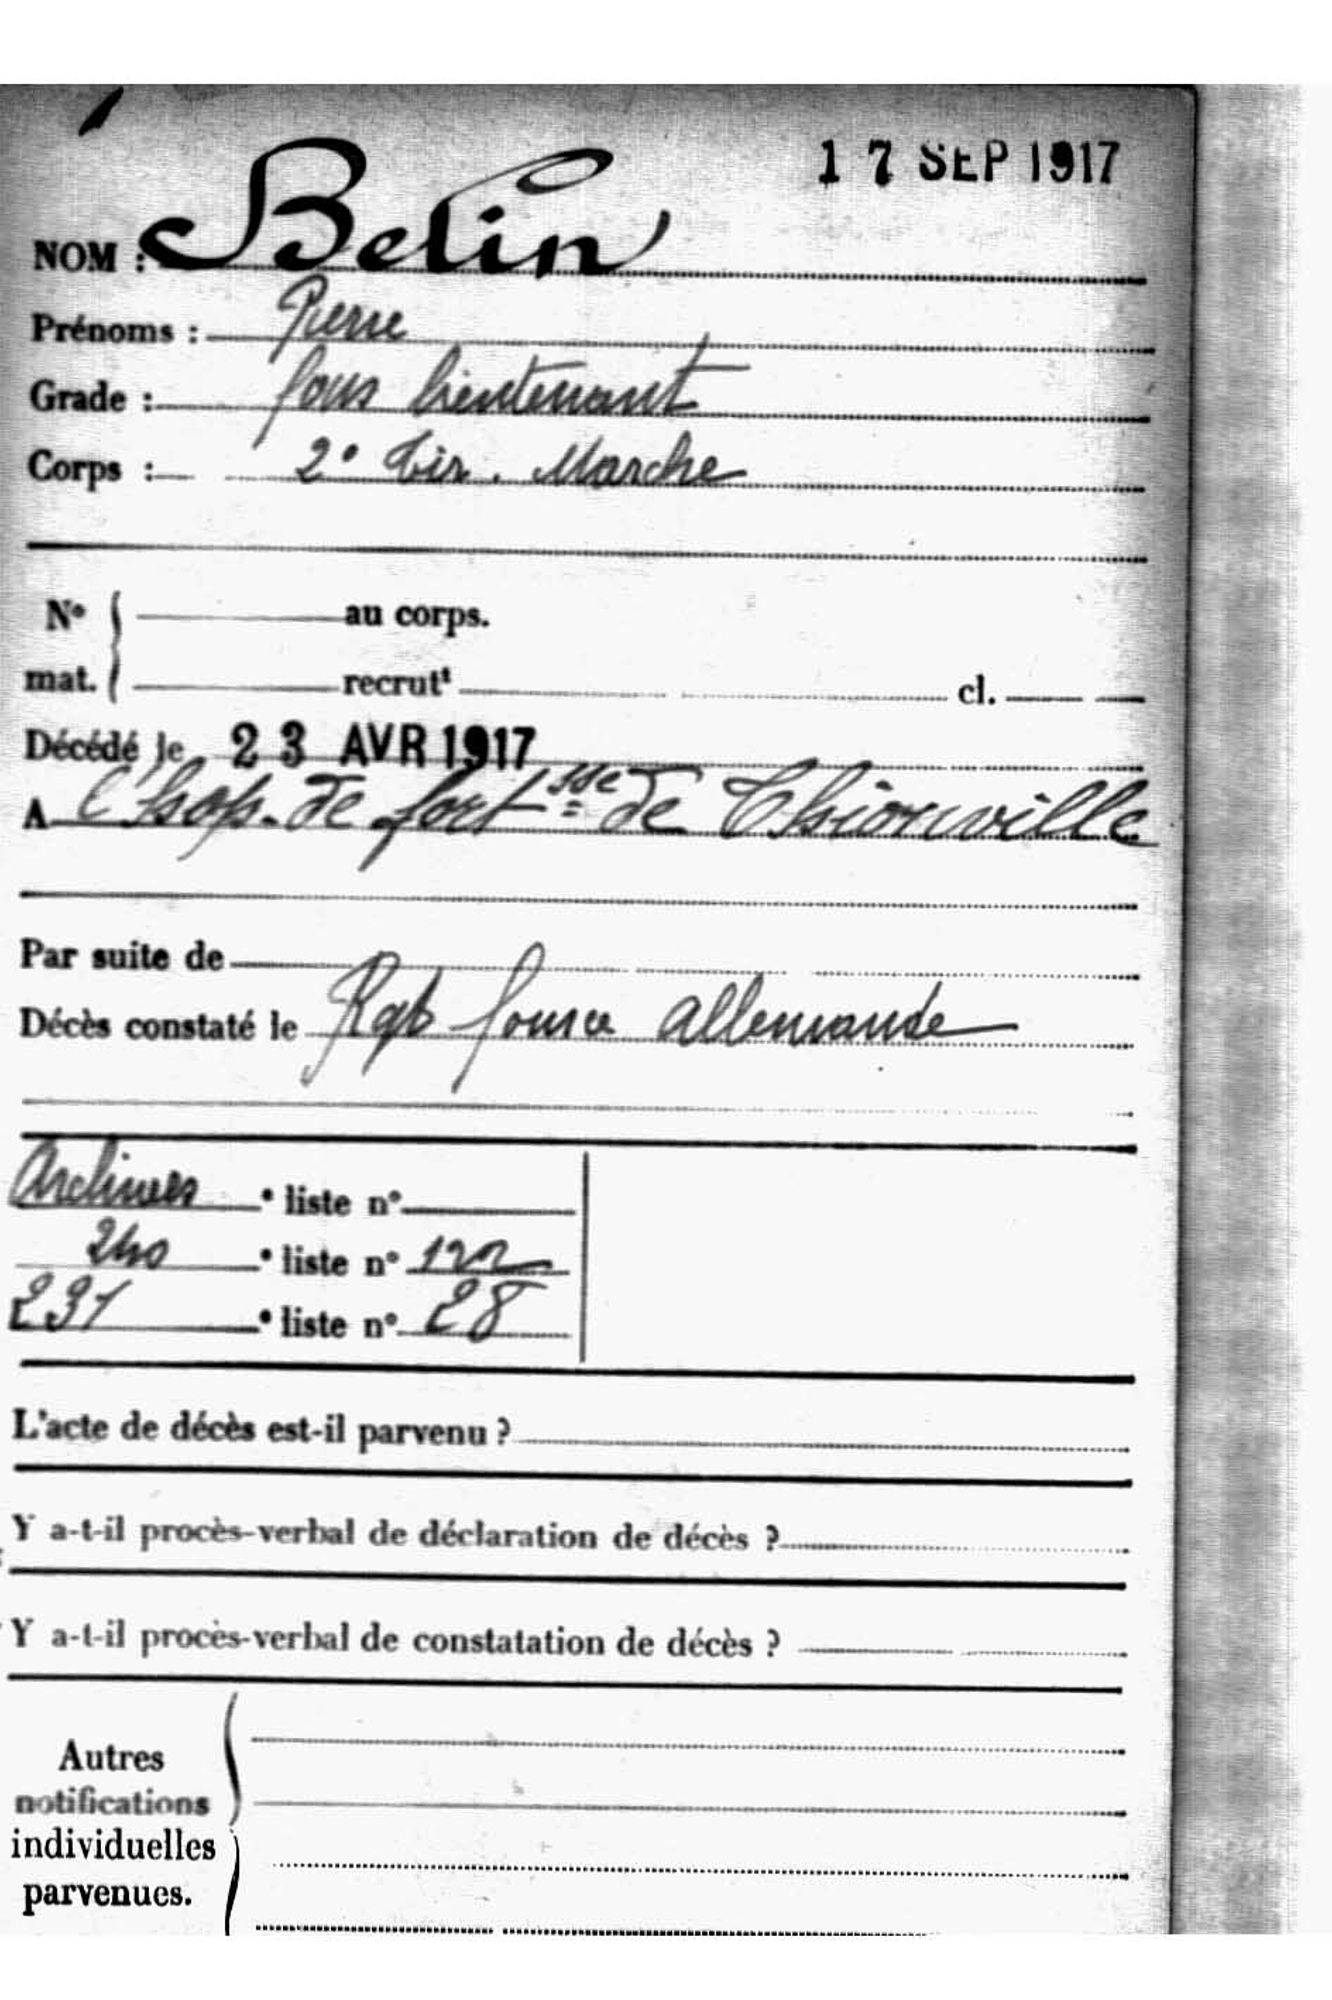 17 SEP 1917
NOM : Belin
Prénoms : Pierre
Grade : sous lieutenant
Corps : 2e Tir. Marche
No au corps.
mat. recrutt cl.
Décédé le 23 AVR 1917
A l'hop. de fortsse de Thionville
Par suite de
Décès constaté le Rqt source allemande
Archives e liste no
240 e liste no 122
231 e liste no 28
L'acte de décès est-il parvenu ?
Y a-t-il procès-verbal de déclaration de décès ?
Y a-t-il procès-verbal de constatation de décès ?
Autres
notifications
individuelles
parvenues.